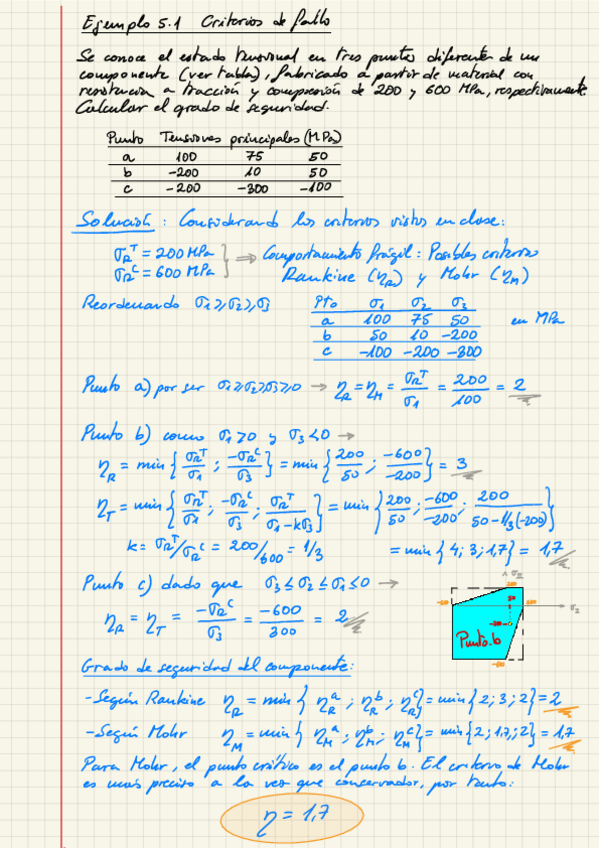 Ejemplo 5.1 Criterios de fallo
Se conoce el estado tensional en tres puntos diferentes de un
componente (ver tabla), fabricado a partir de material con
resistencia a tracción y compresión de 200 y 600 MPa, respectivamente.
Calcular el grado de seguridad.
Punto Tensiones principales (MPa)
a 100 75 50
b -200 10 50
c -200 -300 -100
Solución: Considerando los criterios vistos en clase:
σ_R^T = 200 MPa
σ_R^C = 600 MPa } ⇒ Comportamiento frágil: Posibles criterios
Rankine (η_R) y Mohr (η_M)
Reordenando σ1 ≥ σ2 ≥ σ3
Pto σ1 σ2 σ3
a 100 75 50
b 50 10 -200
c -100 -200 -300
en MPa
Punto a) por ser σ1 ≥ σ2 ≥ σ3 ≥ 0 → η_R = η_M = σ_R^T/σ1 = 200/100 = 2
Punto b) como σ1 ≥ 0 y σ3 ≤ 0 →
η_R = min { σ_R^T/σ1 ; -σ_R^C/σ3 } = min { 200/50 ; -600/-200 } = 3
η_T = min { σ_R^T/σ1 ; -σ_R^C/σ3 ; σ_R^T/σ1-kσ3 } = min { 200/50 ; -600/-200 ; 200/50-1/3(-200) }
k = σ_R^T/σ_R^C = 200/600 = 1/3 = min {4; 3; 1,7} = 1,7
Punto c) dado que σ3 ≤ σ2 ≤ σ1 ≤ 0 →
η_R = η_T = -σ_R^C/σ3 = -600/300 = 2
200
50
200
Punto b
Grado de seguridad del componente:
- Según Rankine η_R = min { η_R^a ; η_R^b ; η_R^c } = min {2; 3; 2} = 2
- Según Mohr η_M = min { η_M^a ; η_M^b ; η_M^c } = min {2; 1,7; 2} = 1,7
Para Mohr, el punto crítico es el punto b. El criterio de Mohr
es más preciso a la vez que conservador, por tanto:
η = 1,7